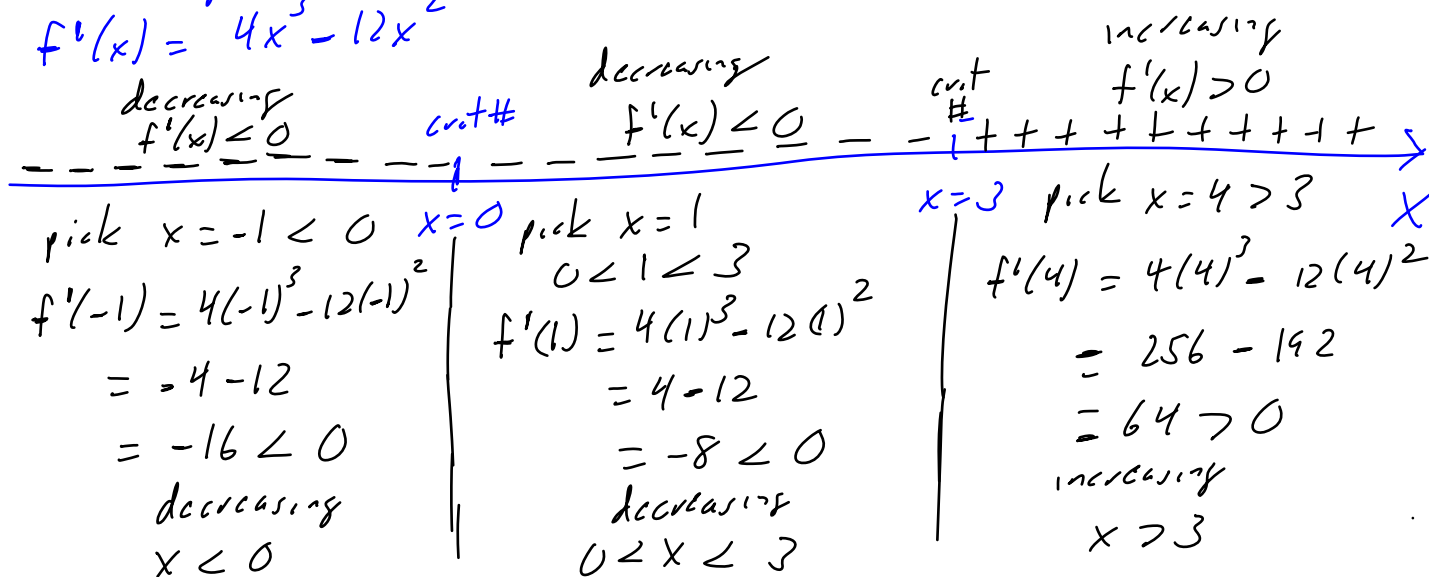 f'(x) = 4x³ - 12x²
decreasing
f'(x) < 0
crit #
decreasing
f'(x) < 0
crit
#
increasing
f'(x) > 0
- - - - - - - - - - - - - - - - + + + + + + + + + +
x = 0
x = 3
X
pick x = -1 < 0
f'(-1) = 4(-1)³ - 12(-1)²
= -4 - 12
= -16 < 0
decreasing
x < 0
pick x = 1
0 < 1 < 3
f'(1) = 4(1)³ - 12(1)²
= 4 - 12
= -8 < 0
decreasing
0 < x < 3
pick x = 4 > 3
f'(4) = 4(4)³ - 12(4)²
= 256 - 192
= 64 > 0
increasing
x > 3